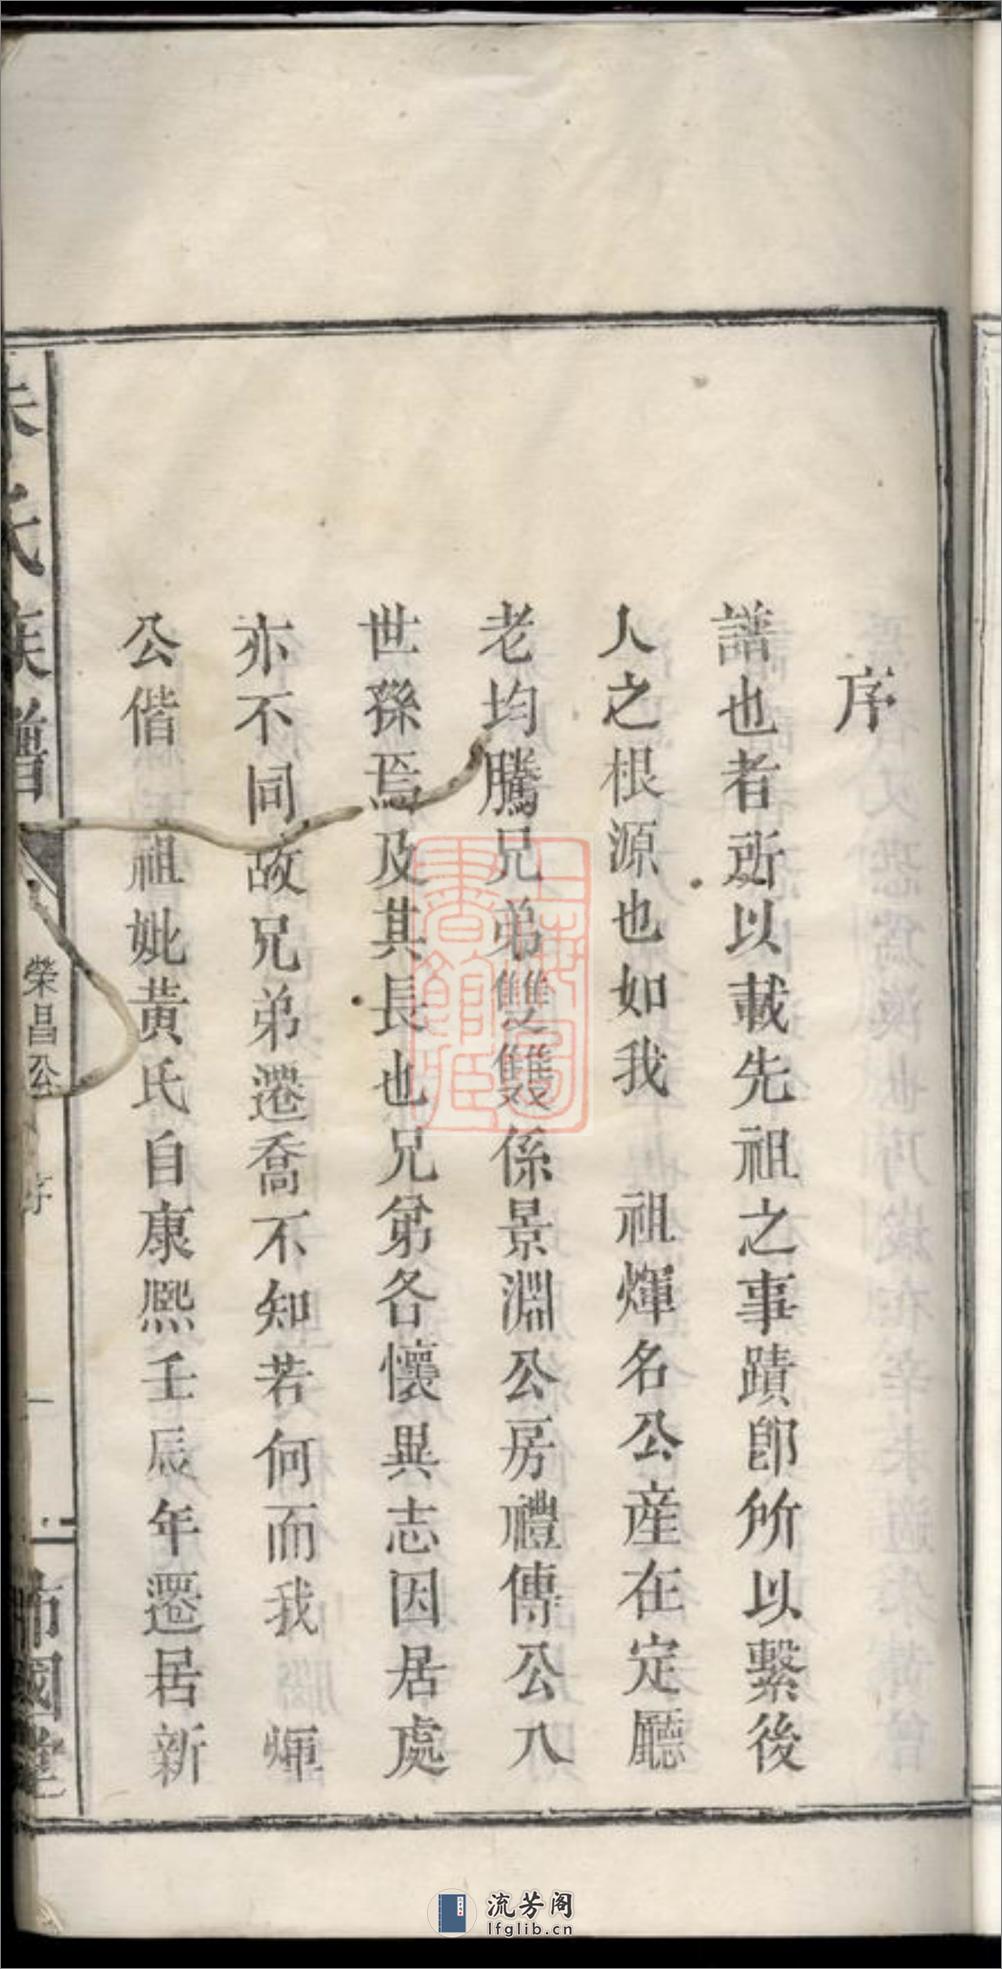 序
譜也者所以載先祖之事蹟卽所以繫後
人之根源也如我　祖煇名公産在定廳
老均騰兄弟雙雙係景淵公房禮傳公八
世孫焉及其長也兄弟各懷異志因居處
亦不同故兄弟遷喬不知若何而我　煇
公偕祖妣黃氏自康熙壬辰年遷居新
朱氏族譜
榮昌公
序
一
國堂
上海圖書館藏
流芳阁
lfglib.cn